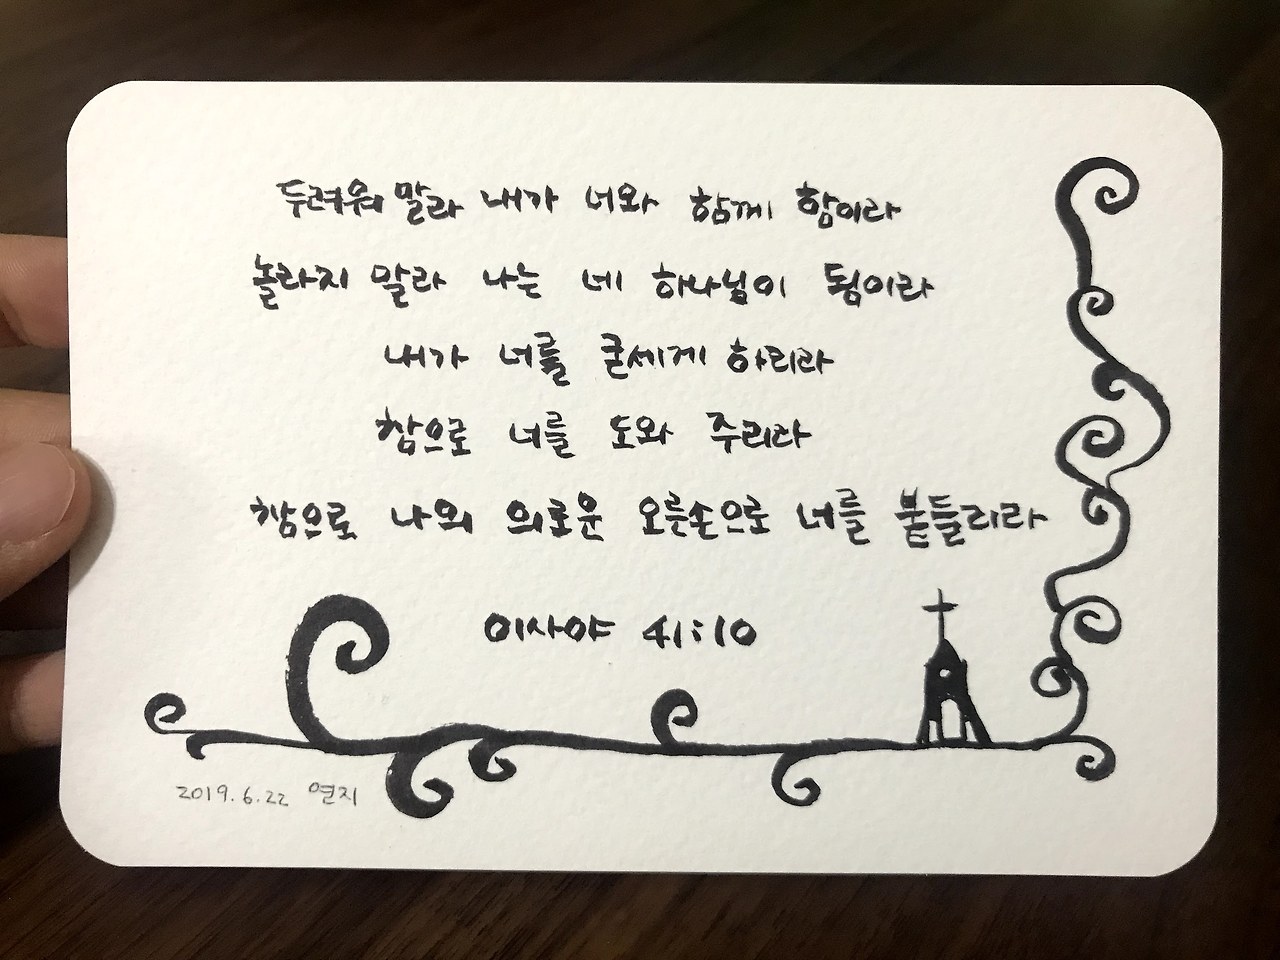 두려워 말라 내가 너와 함께 함이라
놀라지 말라 나는 네 하나님이 됨이라
내가 너를 굳세게 하리라
참으로 너를 도와 주리라
참으로 나의 의로운 오른손으로 너를 붙들리라
이사야 41:10
2019.6.22 연지